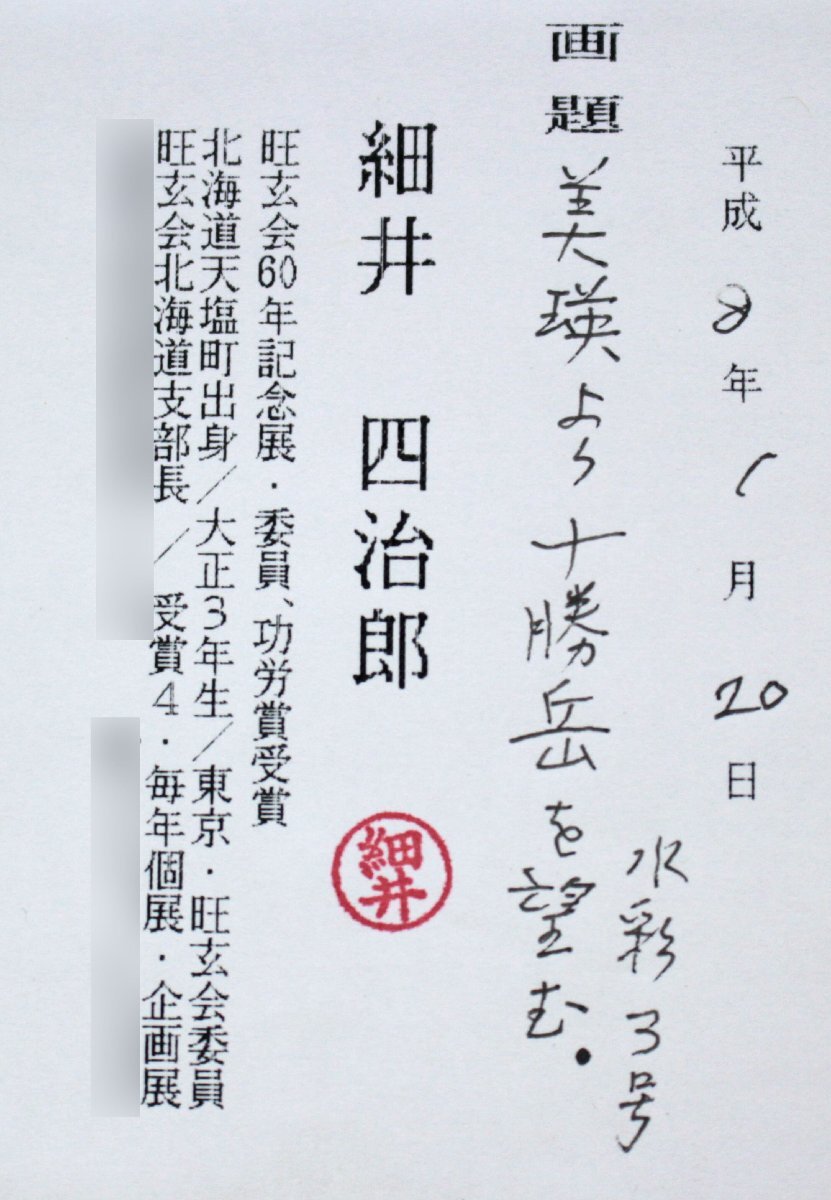 平成8年1月20日
水彩3号
画題 美瑛より十勝岳を望む.
細井 四治郎
細井
旺玄会60年記念展・委員、功労賞受賞
北海道天塩町出身/大正3年生/東京・旺玄会委員
旺玄会北海道支部長/受賞4・毎年個展・企画展